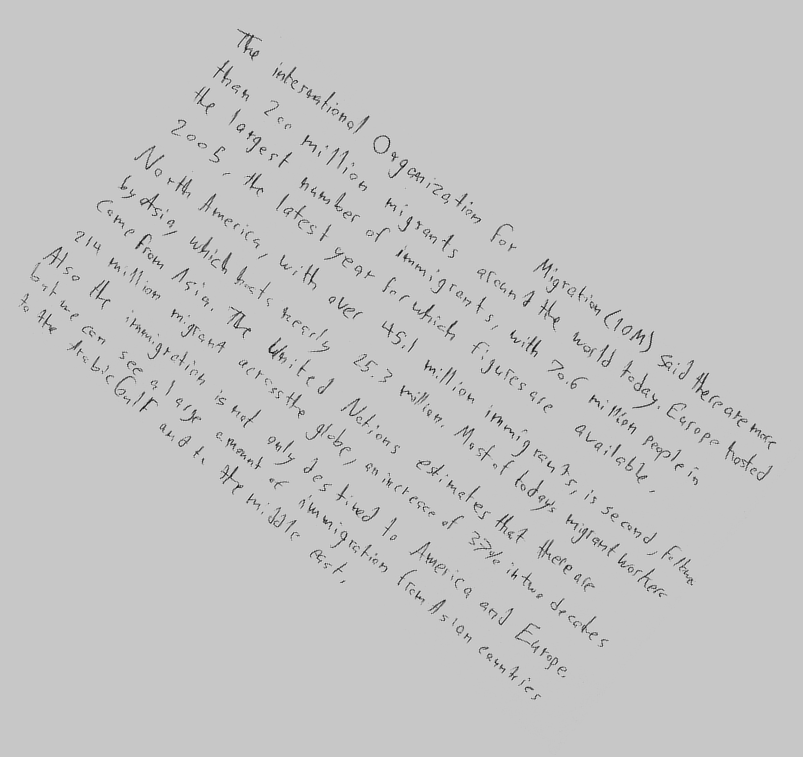 The international Organization for Migration (IOM) said there are more
than 200 million migrants around the world today. Europe hosted
the largest number of immigrants, with 70.6 million people in
2005, the latest year for which figures are available.
North America, with over 45.1 million immigrants, is second, follow
by Asia, which hosts nearly 25.3 million. Most of todays migrant workers
come from Asia. The United Nations estimates that there are
214 million migrant across the globe, an increase of 37% in two decades
Also the immigration is not only destined to America and Europe.
but we can see a large amount of immigration from Asian countries
to the Arabic Gulf and to the middle east.